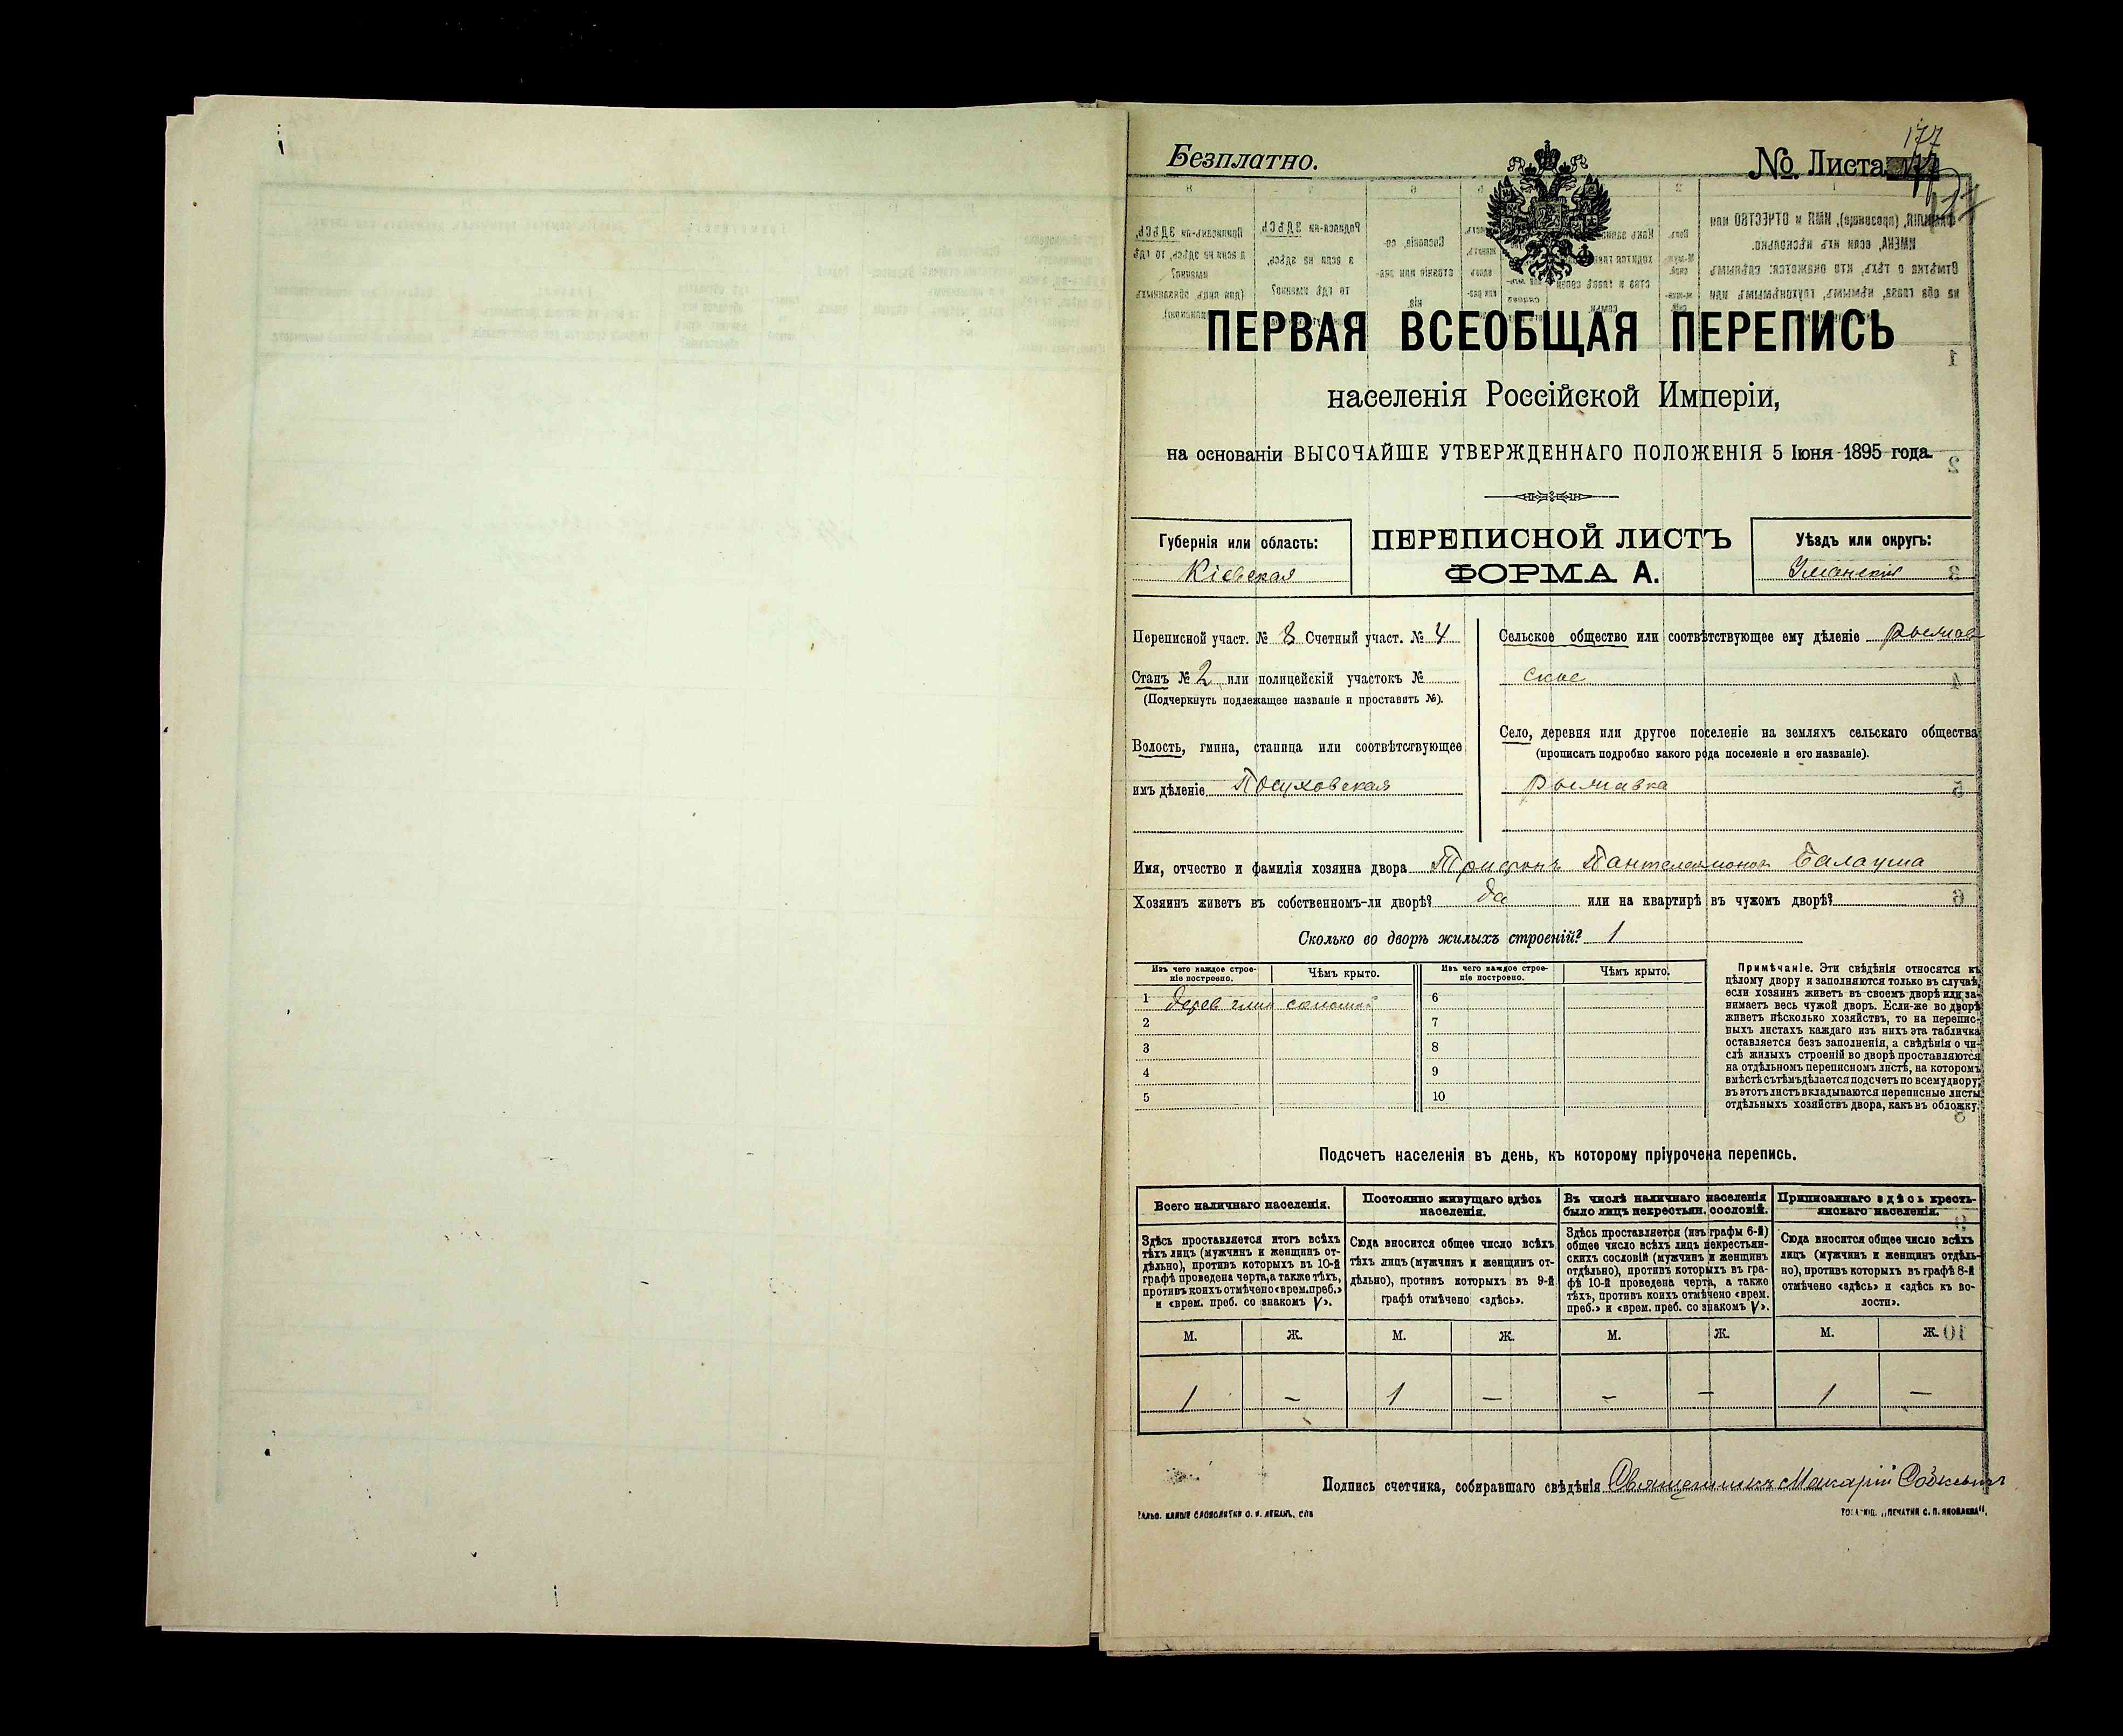 Безплатно.
177
№ Листа
ПЕРВАЯ ВСЕОБЩАЯ ПЕРЕПИСЬ
населенія Россійской Имперіи,
на основаніи ВЫСОЧАЙШЕ УТВЕРЖДЕННАГО ПОЛОЖЕНІЯ 5 Іюня 1895 года.
Губернія или область:
Кіевская
ПЕРЕПИСНОЙ ЛИСТЪ
ФОРМА А.
Уѣздъ или округъ:
Уманскій
Переписной участ. № 8 Счетный участ. № 4
Станъ № 2 или полицейскій участокъ №
(Подчеркнуть подлежащее названіе и проставить №).
Волость, гмина, станица или соотвѣтствующее
имъ дѣленіе Посуховская
Сельское общество или соотвѣтствующее ему дѣленіе Рыжав
ское
Село, деревня или другое поселеніе на земляхъ сельскаго общества
(прописать подробно какого рода поселеніе и его названіе).
Рыжавка
Имя, отчество и фамилія хозяина двора Трифонъ Пантелеимоновъ Балауша
Хозяинъ живетъ въ собственномъ-ли дворѣ? да или на квартирѣ въ чужомъ дворѣ?
Сколько во дворѣ жилыхъ строеній? 1
Изъ чего каждое строе-
ніе построено.
Чѣмъ крыто.
Изъ чего каждое строе-
ніе построено.
Чѣмъ крыто.
1 дерев глин соломой 6
2 7
3 8
4 9
5 10
Примѣчаніе. Эти свѣдѣнія относятся къ
цѣлому двору и заполняются только въ случаѣ,
если хозяинъ живетъ въ своемъ дворѣ или за-
нимаетъ весь чужой дворъ. Если-же во дворѣ
живетъ нѣсколько хозяйствъ, то на перепис-
ныхъ листахъ каждаго изъ нихъ эта табличка
оставляется безъ заполненія, а свѣдѣнія о чи-
слѣ жилыхъ строеній во дворѣ проставляются
на отдѣльномъ переписномъ листѣ, на которомъ
вмѣстѣ съ тѣмъ дѣлается подсчетъ по всему двору;
въ этотъ листъ вкладываются переписные листы
отдѣльныхъ хозяйствъ двора, какъ въ обложку.
Подсчетъ населенія въ день, къ которому пріурочена перепись.
Всего наличнаго населенія.
Здѣсь проставляется итогъ всѣхъ
тѣхъ лицъ (мужчинъ и женщинъ от-
дѣльно), противъ которыхъ въ 10-й
графѣ проведена черта, а также тѣхъ,
противъ коихъ отмѣчено «врем. преб.»
и «врем. преб. со знакомъ V».
Постоянно живущаго здѣсь
населенія.
Сюда вносится общее число всѣхъ
тѣхъ лицъ (мужчинъ и женщинъ от-
дѣльно), противъ которыхъ въ 9-й
графѣ отмѣчено «здѣсь».
Въ числѣ наличнаго населенія
было лицъ некрестьян. сословій.
Здѣсь проставляется (изъ графы 6-й)
общее число всѣхъ лицъ некрестьян-
скихъ сословій (мужчинъ и женщинъ
отдѣльно), противъ которыхъ въ гра-
фѣ 10-й проведена черта, а также
тѣхъ, противъ коихъ отмѣчено «врем.
преб.» и «врем. преб. со знакомъ V».
Приписаннаго здѣсь кресть-
янскаго населенія.
Сюда вносится общее число всѣхъ
лицъ (мужчинъ и женщинъ отдѣль-
но), противъ которыхъ въ графѣ 8-й
отмѣчено «здѣсь» и «здѣсь къ во-
лости».
М. Ж. М. Ж. М. Ж. М. Ж.
1 – 1 – – – 1 –
Подпись счетчика, собиравшаго свѣдѣнія Священникъ Макарій